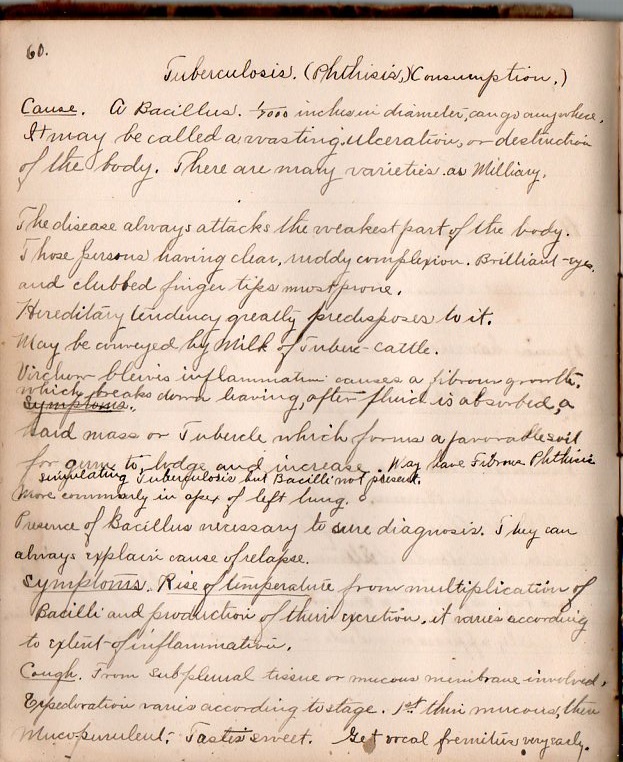 60.
Tuberculosis. (Phthisis,)(Consumption.)
Cause. A Bacillus. 1/7000 inches in diameter, can go anywhere.
It may be called a wasting, ulceration, or destruction
of the body. There are many varieties. as Milliary.
The disease always attacks the weakest part of the body.
Those persons having clear, ruddy complexion. Brilliant-eyes,
and clubbed finger tips most prone.
Hereditary tendency greatly predisposes to it.
May be conveyed by Milk of Tuberc-cattle.
Virchow bleives inflammation causes a fibrous growth,
which breaks down leaving, after fluid is absorbed, a
Symptoms.
hard mass or Tubercle which forms a favorable soil
for germ to lodge and increase. May have Fibrous Phthisis
simulating Tuberculosis but Bacilli not present.
More commonly in apex of left lung.
Presence of Bacillus necessary to sure diagnosis. They can
always explain cause of relapse.
Symptoms. Rise of temperature from multiplication of
Bacilli and production of their excretion, it varies according
to extent of inflammation.
Cough. From subpleural tissue or mucous membrane involved.
Expectoration varies according to stage. 1st thin mucous, then
Mucopurulent, Tastes sweet. Get vocal fremitus very early.